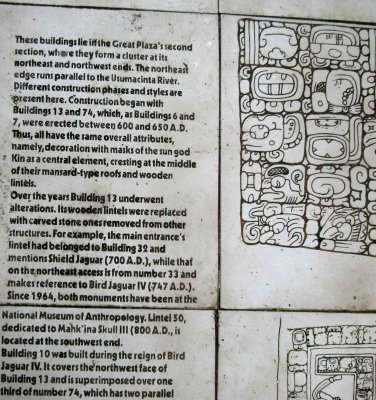 These buildings lie in the Great Plaza's second
section, where they form a cluster at its
northeast and northwest ends. The northeast
edge runs parallel to the Usumacinta River.
Different construction phases and styles are
present here. Construction began with
Buildings 13 and 74, which, as Buildings 6 and
7, were erected between 600 and 650 A.D.
Thus, all have the same overall attributes,
namely, decoration with masks of the sun god
Kin as a central element, cresting at the middle
of their mansard-type roofs and wooden
lintels.
Over the years Building 13 underwent
alterations. Its wooden lintels were replaced
with carved stone ones removed from other
structures. For example, the main entrance's
lintel had belonged to Building 32 and
mentions Shield Jaguar (700 A.D.), while that
on the northeast access is from number 33 and
makes reference to Bird Jaguar IV (747 A.D.).
Since 1964, both monuments have been at the
National Museum of Anthropology. Lintel 50,
dedicated to Mahk'ina Skull III (800 A.D., is
located at the southwest end.
Building 10 was built during the reign of Bird
Jaguar IV. It covers the northwest face of
Building 13 and is superimposed over one
third of number 74, which has two parallel